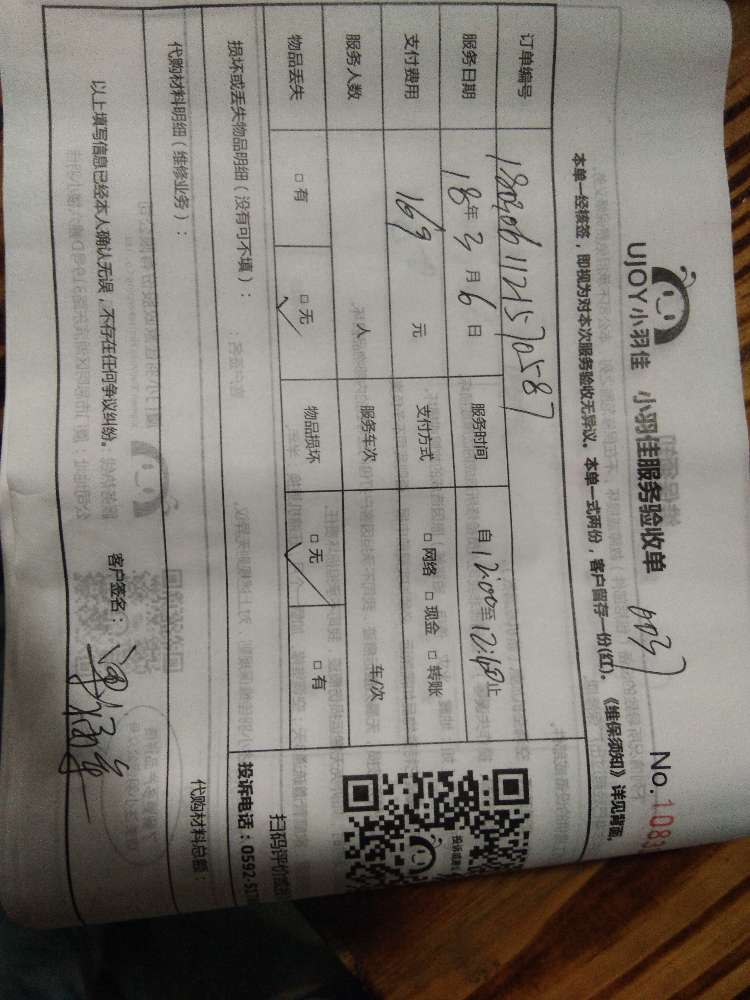 UJOY小羽佳 小羽佳服务验收单 6037 No.1089
本单一经核签，即视为对本次服务验收无异议。本单一式两份，客户留存一份(红)。《维保须知》详见背面。
订单编号
服务日期 18年3月6日 服务时间 自12:00至12:40止
支付费用 169元 支付方式 □网络 □现金 □转账
服务人数 人 服务车次 车/次
物品丢失 □有 □无 物品损坏 □无 □有
损坏或丢失物品明细（没有可不填）：
扫码评价或投
投诉电话：0592-517
代购材料明细（维修业务）： 代购材料总额：
以上填写信息已经本人确认无误，不存在任何争议纠纷。 客户签名：